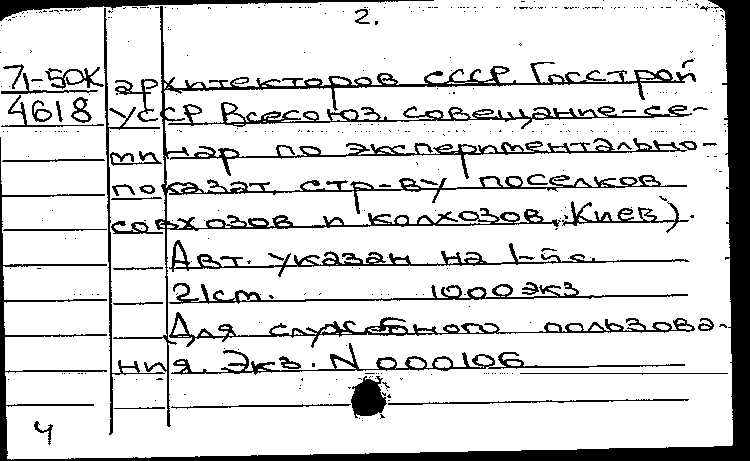 2.
71-50К архитекторов СССР. Госстрой
4618 УССР. Всесоюз. совещание-се-
минар по экспериментально-
показат. стр-ву поселков
совхозов и колхозов, Киев).
Авт. указан на 1-5 с.
21 ст. 1000 экз.
Для служебного пользова-
ния. Экз. N 000106
4